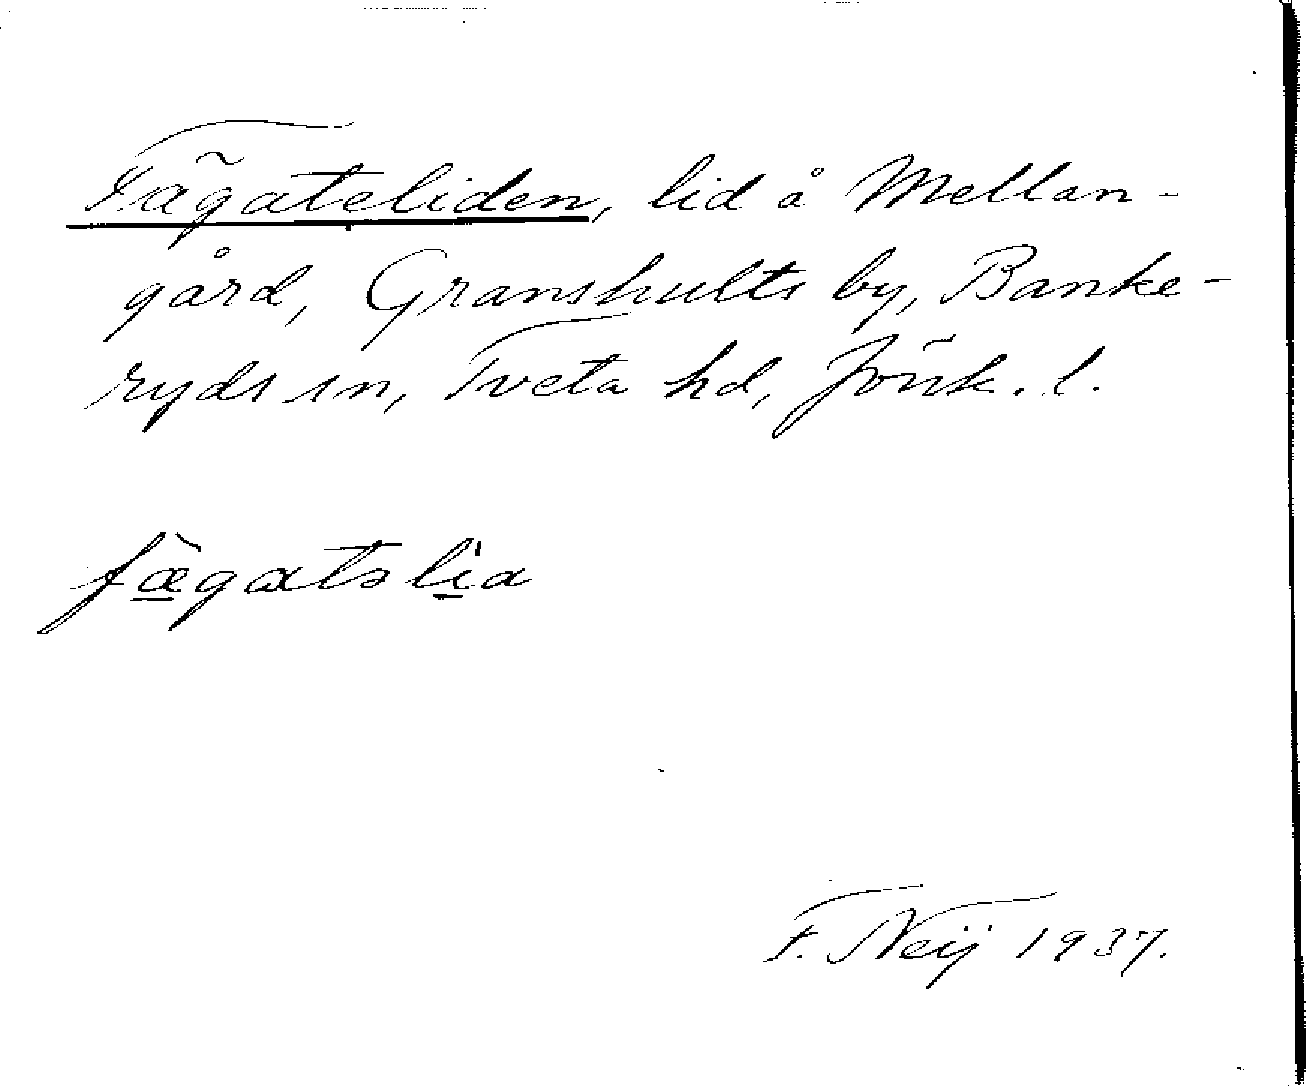 Fägateliden, lid å Mellan-
gård, Granshults by, Banke-
ryds sn, Tveta hd, Jönk. l.
fægatslia
F. Neij 1937.